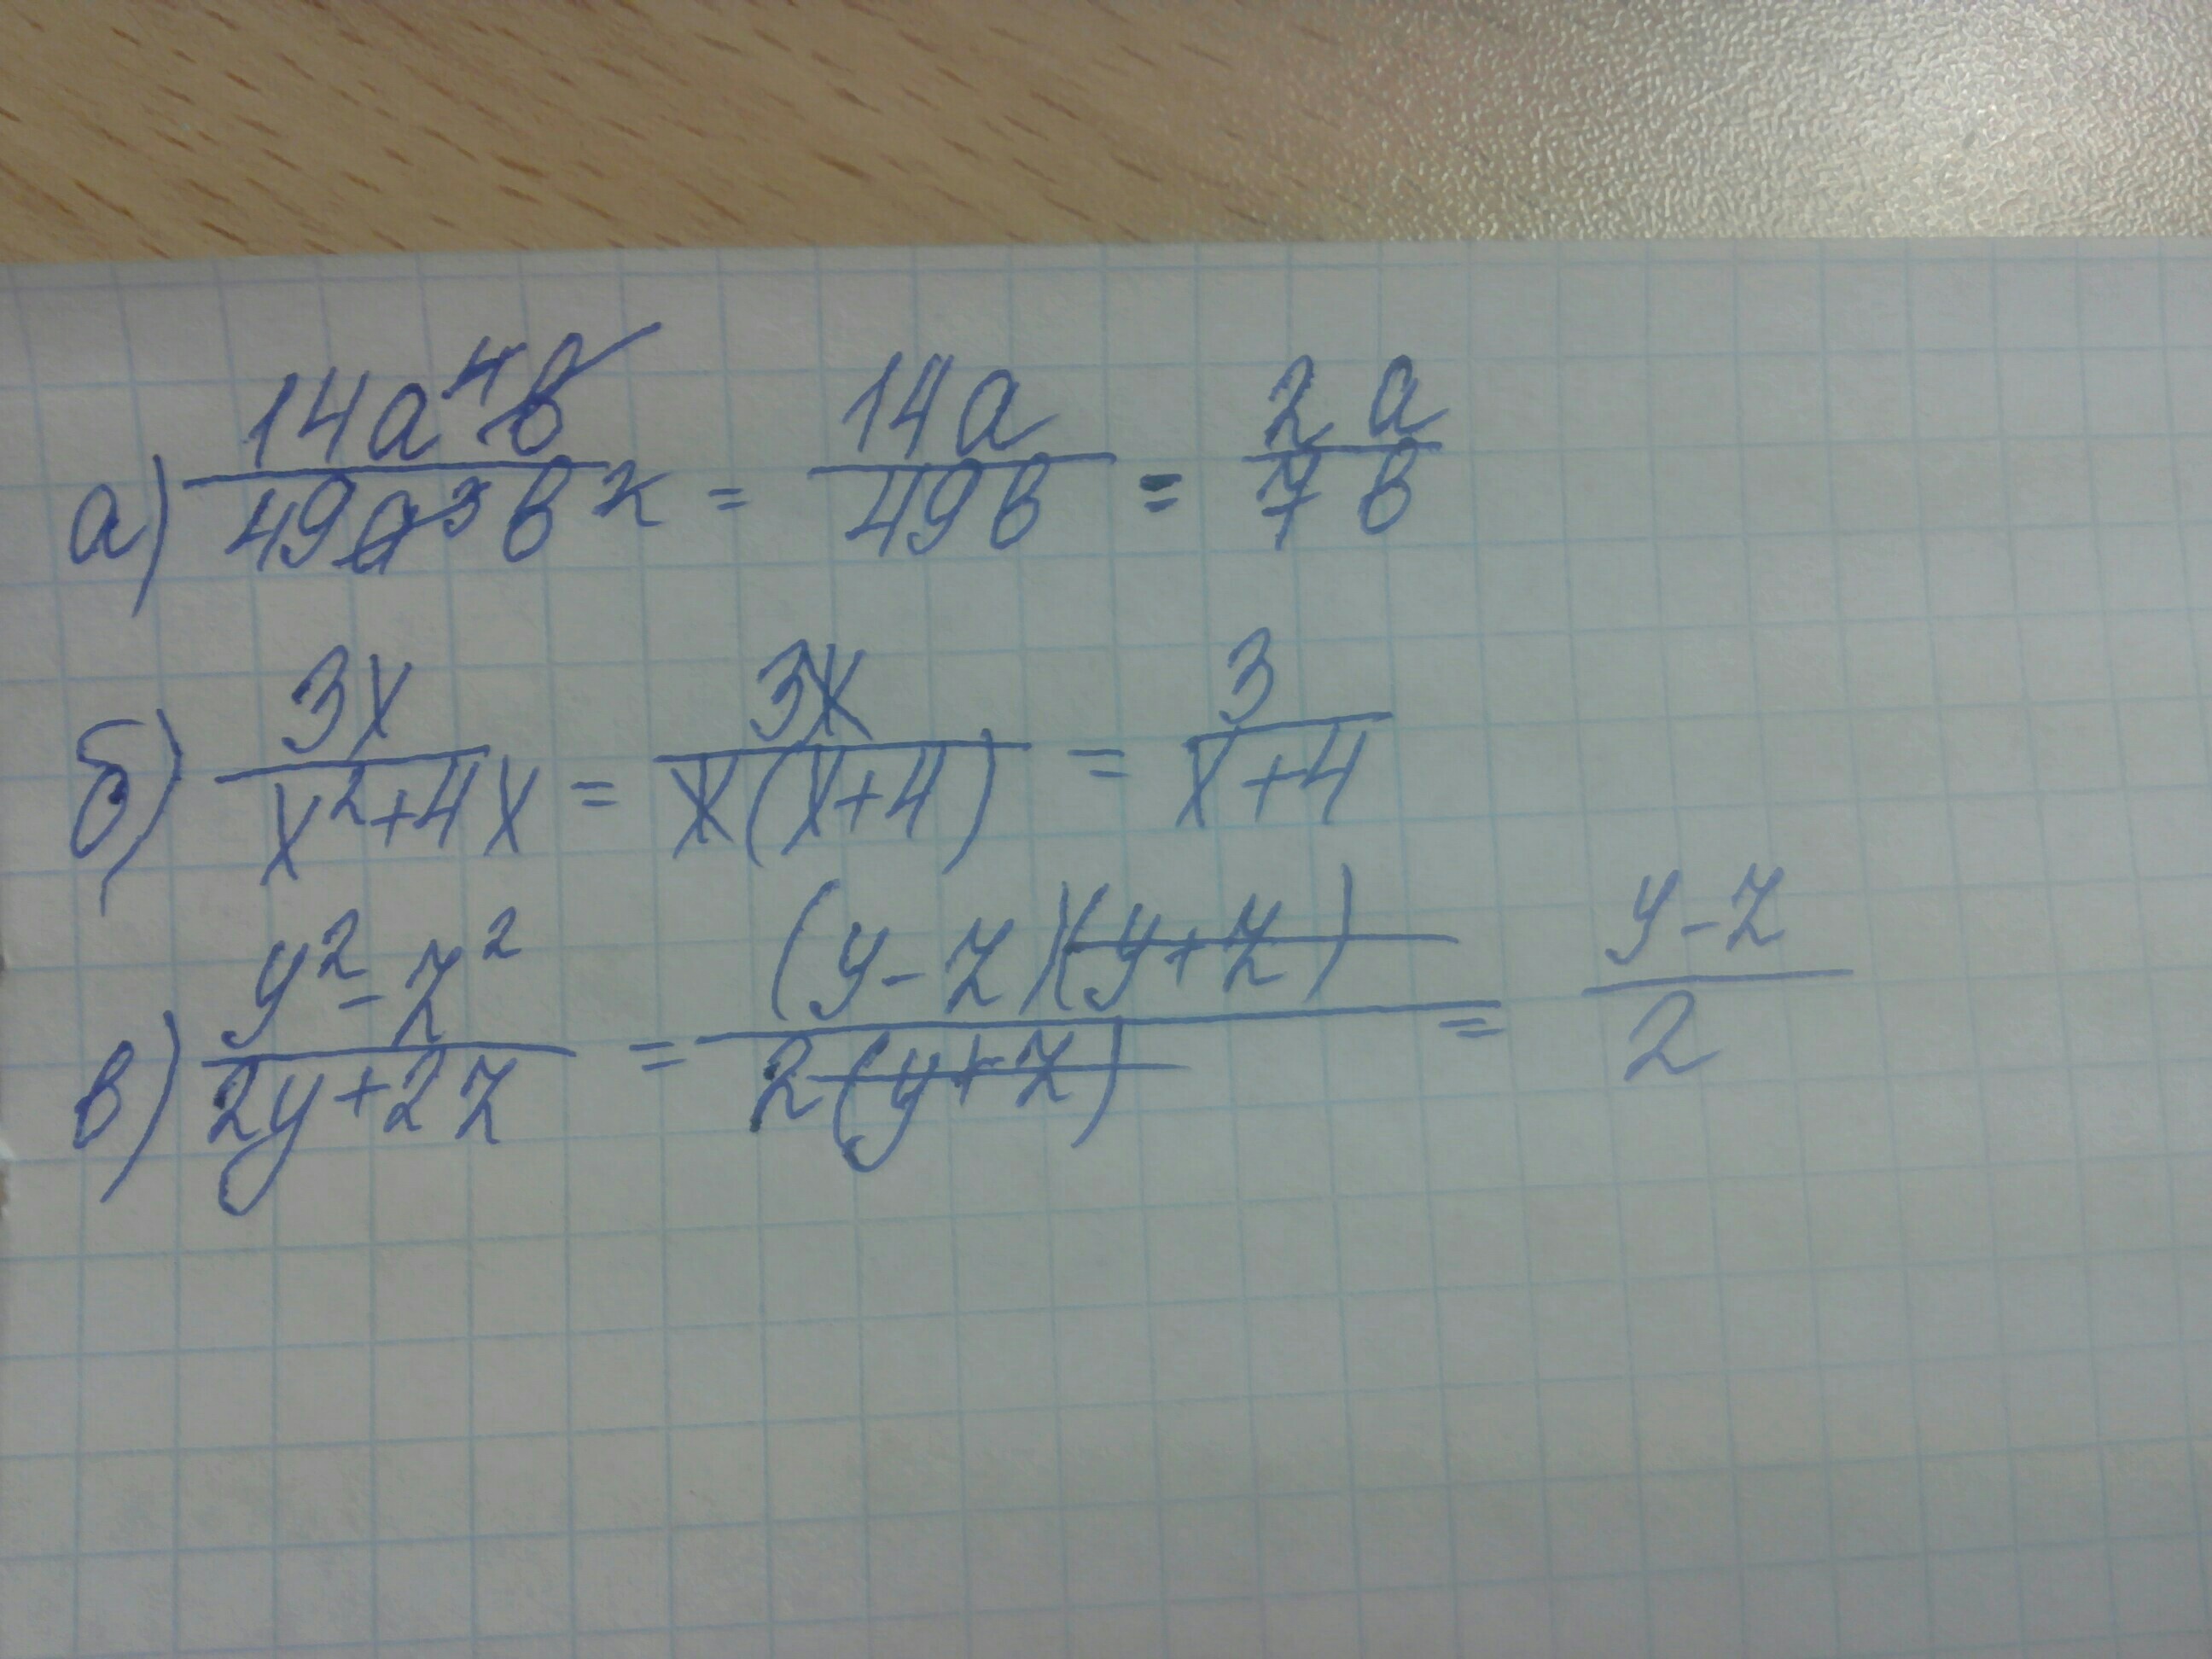 а) 14a⁴b / 49a³b² = 14a / 49b = 2a / 7b
б) 3x / x²+4x = 3x / x(x+4) = 3 / x+4
в) y²-z² / 2y+2z = (y-z)(y+z) / 2(y+z) = y-z / 2